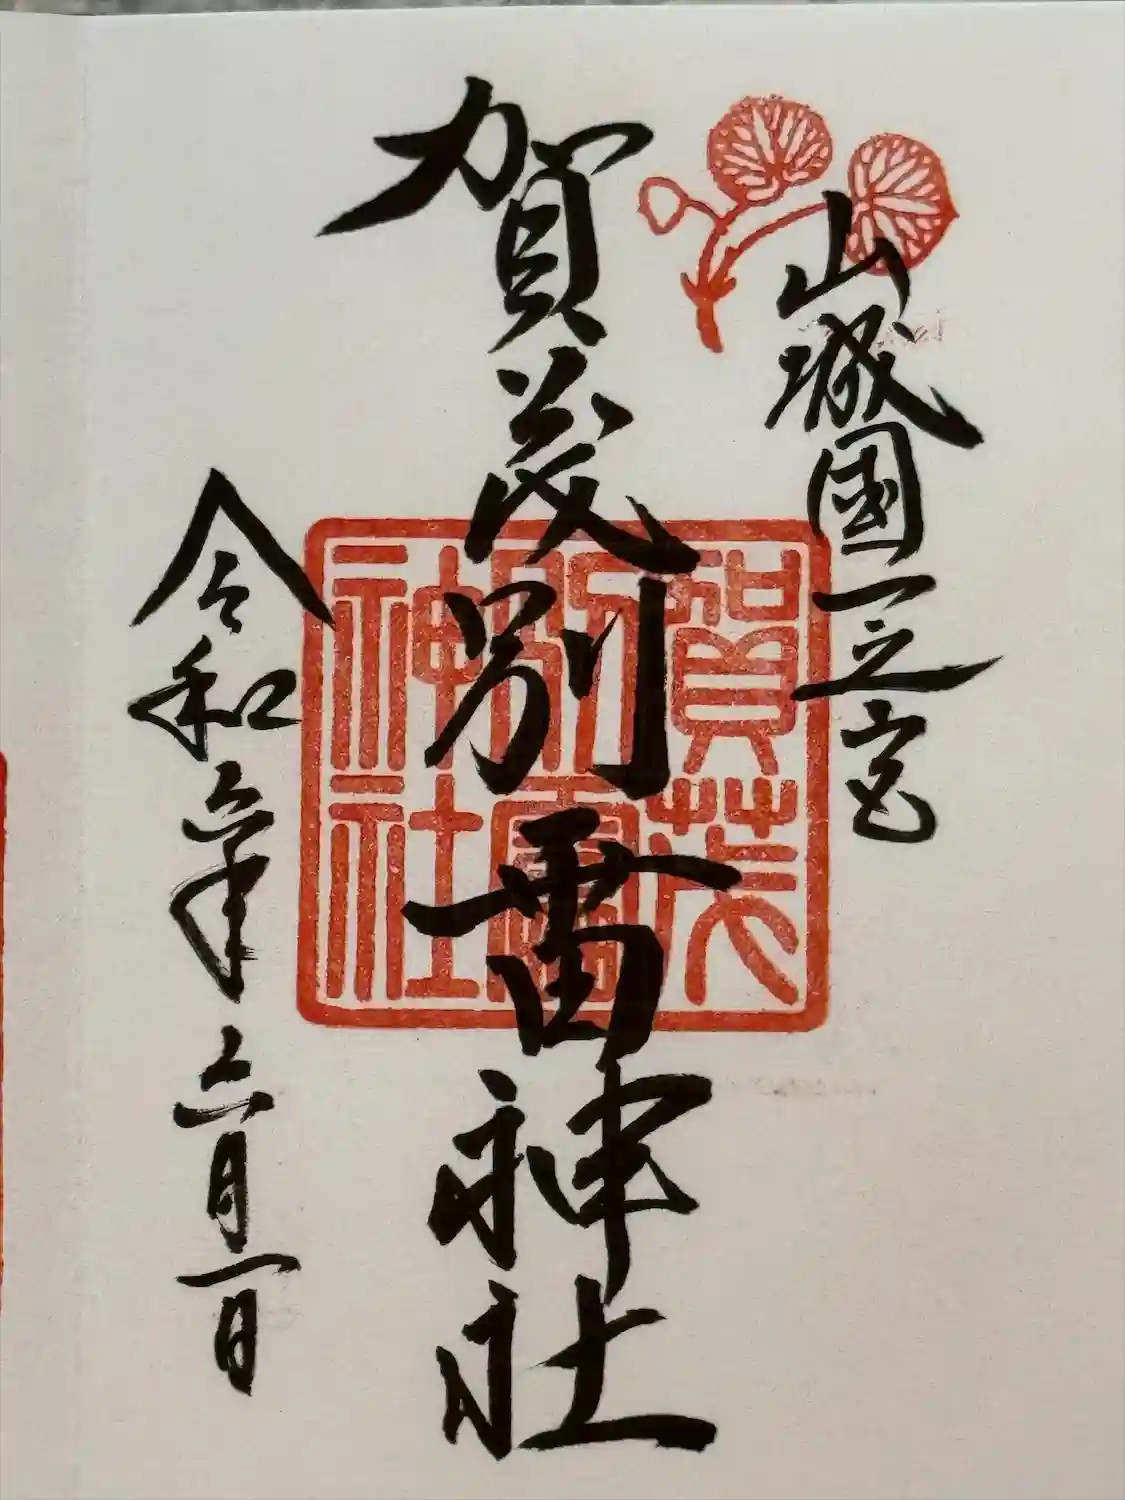 山城国一之宮
賀茂別雷神社
賀茂
別雷
神社
令和六年六月一日